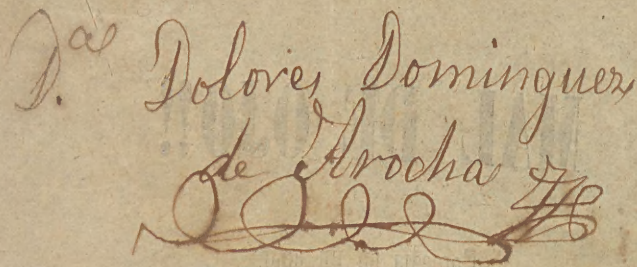 D.ª Dolores Dominguez
de Arocha